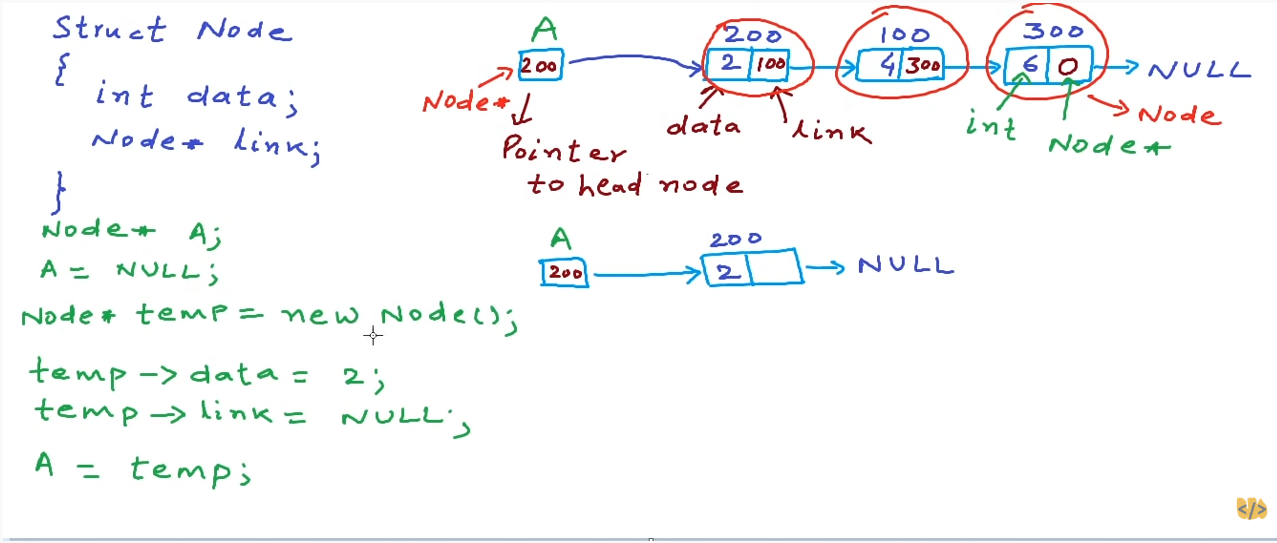 Struct Node
{
int data;
Node* link;
}
Node* A;
A = NULL;
Node* temp = new Node();
temp -> data = 2;
temp -> link = NULL;
A = temp;
A
200
Node*
Pointer
to head node
200
2 100
data
link
100
4 300
300
6 0
NULL
int
Node*
Node
A
200
200
2
NULL
</>